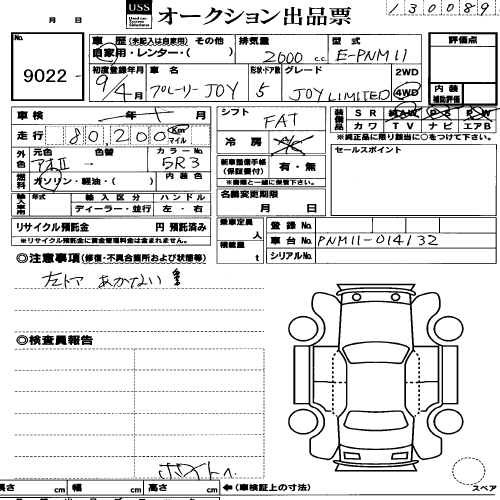 月 日
USS Used car System Solutions オークション出品票
130089
No. 9022
車 歴 (未記入は自家用) その他
自家用・レンター・( )
排気量 2000 c.c.
型式 E-PNM11
評価点
初度登録年月 9/4月
車 名 プレーリーJOY
形状・ドア数 5
グレード JOY LIMITED
2WD
4WD
内 装
補助評価
車 検 年 月
走 行 80,200 Km マイル
シフト FAT
冷 房
装備品 S R AW P S P W
カ ワ T V ナ ビ エアB
※純正品に限り該当に○をつけて下さい
外色 元色 色替 カラーNo.
5R3
内 装 色
燃料 ガソリン・軽油・( )
新車整備手帳(保証書付) 有・無
※書類と一緒に保管して下さい
セールスポイント
輸入車用 年式 輸 入 区 分 ハ ン ド ル
ディーラー・並行 左・右
名義変更期限 月 日
リサイクル預託金 円 預託済み
※リサイクル預託金に資金管理料金は含まれません
乗車定員 人
積載量 t
登 録 No.
車 台 No. PNM11-014132
シリアルNo.
◎注意事項 (修復・不具合箇所および状態等)
左ドア あかない
◎検査員報告
ホワイトへ
長さ cm 幅 cm 高さ cm ←(車検証上の寸法)
スペア